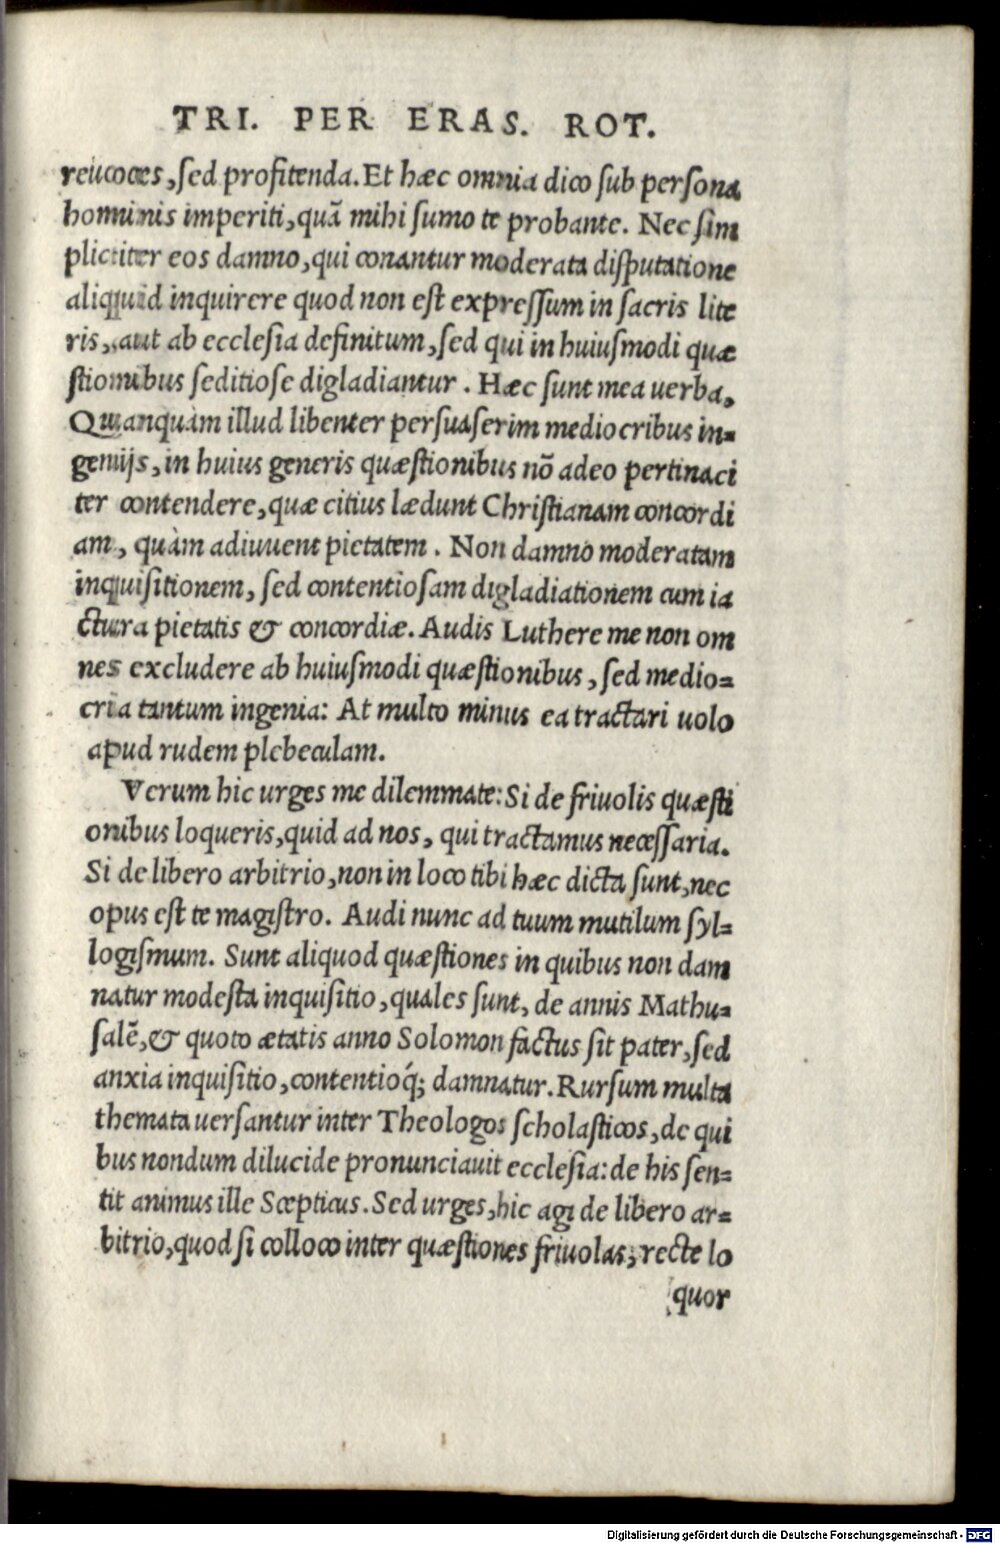 TRI. PER ERAS. ROT.
reiicões, ſed profitenda. Et hæc omnia dico ſub perſona
hominis imperiti, quã mihi ſumo te probante. Nec ſim
pliciter eos damno, qui conantur moderata diſputatione
aliquid inquirere quod non eſt expreſſum in ſacris lite
ris, aut ab eccleſia definitum, ſed qui in huiuſmodi quæ
ſtionibus ſeditioſe digladiantur. Hæc ſunt mea uerba,
Quanquàm illud libenter perſuaſerim mediocribus in=
genijs, in huius generis quæſtionibus nõ adeo pertinaci
ter contendere, quæ citius lædunt Chriſtianam concordi
am, quàm adiuuent pietatem. Non damno moderatam
inquiſitionem, ſed contentioſam digladiationem cum ia
ctura pietatis & concordiæ. Audis Luthere me non om
nes excludere ab huiuſmodi quæſtionibus, ſed medio=
cria tantum ingenia: At multo minus ea tractari uolo
apud rudem plebeculam.
Verum hic urges me dilemmate: Si de friuolis quæſti
onibus loqueris, quid ad nos, qui tractamus neceſſaria.
Si de libero arbitrio, non in loco tibi hæc dicta ſunt, nec
opus eſt te magiſtro. Audi nunc ad tuum mutilum ſyl=
logiſmum. Sunt aliquod quæſtiones in quibus non dam
natur modeſta inquiſitio, quales ſunt, de annis Mathu=
ſalẽ, & quoto ætatis anno Solomon factus ſit pater, ſed
anxia inquiſitio, contentioq́; damnatur. Rurſum multa
themata uerſantur inter Theologos ſcholaſticos, de qui
bus nondum dilucide pronunciauit eccleſia: de his ſen=
tit animus ille Scepticus. Sed urges, hic agi de libero ar=
bitrio, quod ſi colloco inter quæſtiones friuolas, recte lo
quor
Digitalisierung gefördert durch die Deutsche Forschungsgemeinschaft - DFG